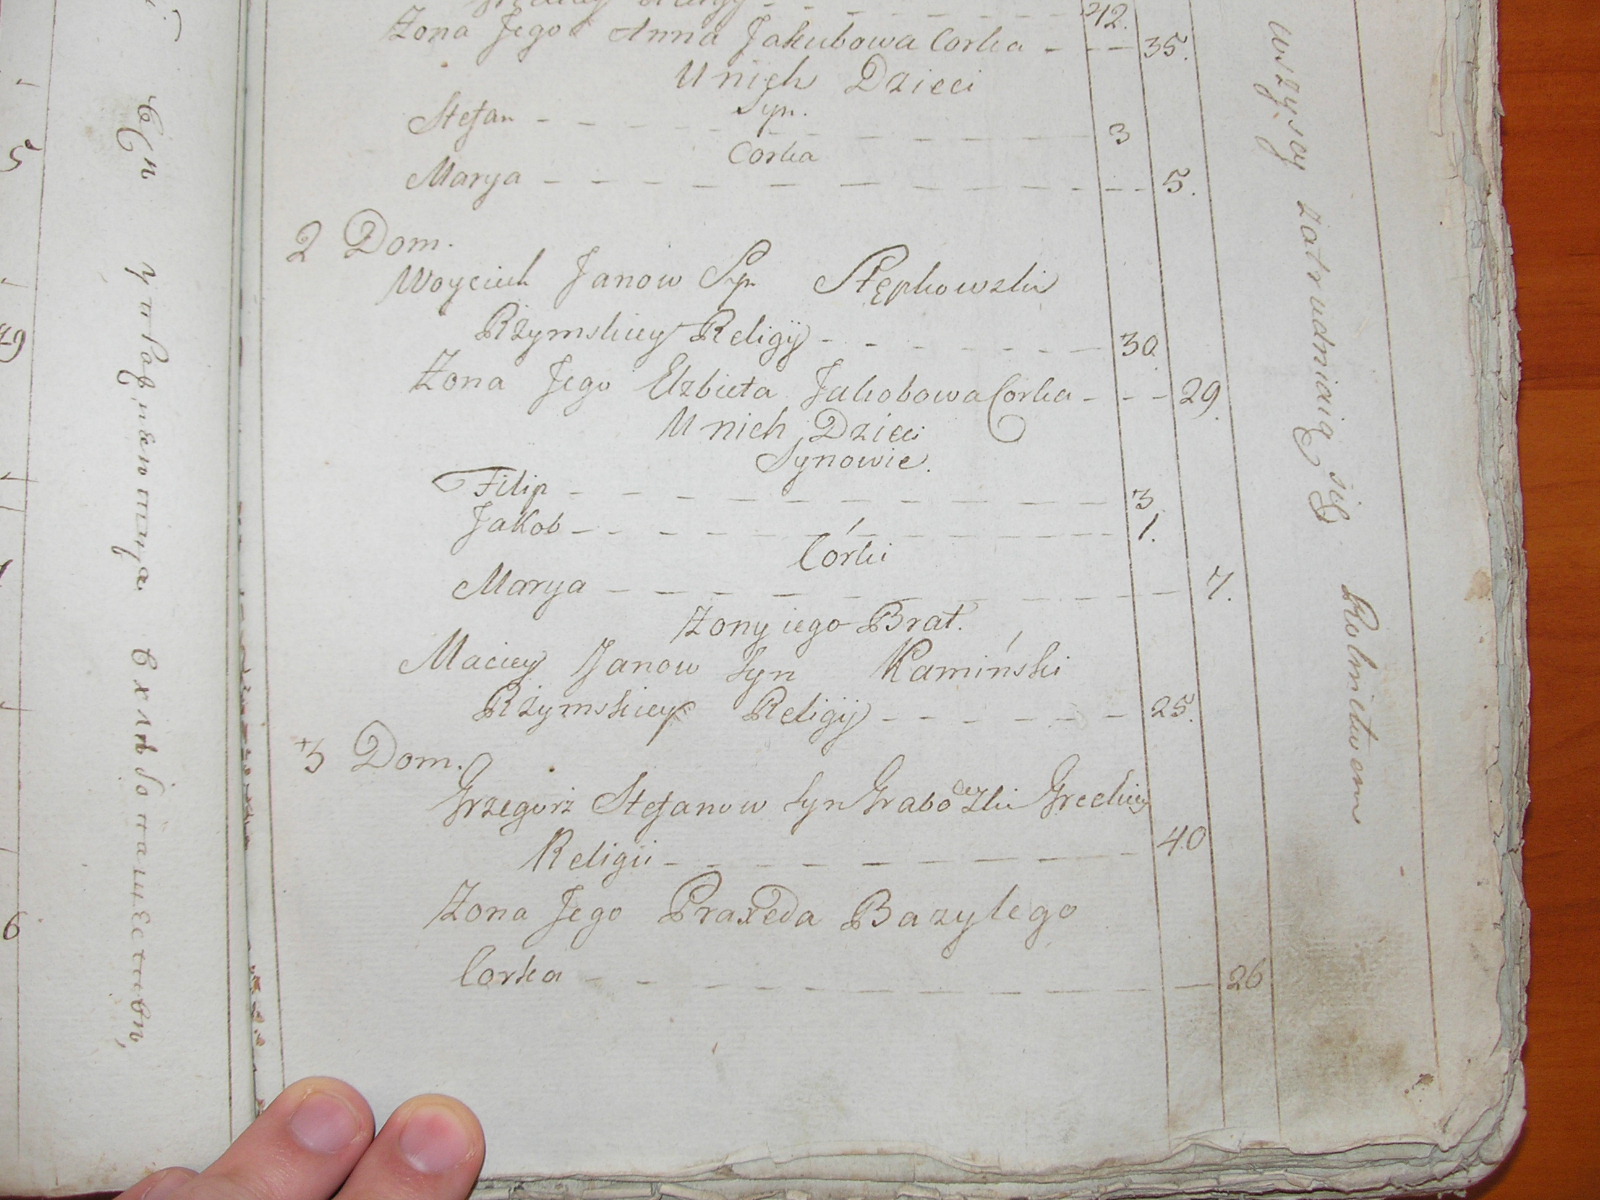 42.
Żona Jego Anna Jakubowa Corka - - - 35.
U nich Dzieci
Syn.
Stefan - - - 3
Corka
Marya - - - 5.
2 Dom.
Woyciech Janow Syn Stępkowski
Rzymskiey Religij - - - 30.
Żona Jego Elzbieta Jakobowa Corka - - - 29.
U nich Dzieci
Synowie.
Filip - - - 3.
Jakob - - - 1.
Córki
Marya - - - 7.
Żony iego Brat.
Maciey Janow Syn Kamiński
Rzymskiey Religij - - - 25.
3 Dom.
Grzegorz Stefanow Syn Grabowski Greckiey
Religii - - - 40
Żona Jego Praxeda Bazylego
Corka - - - 26
wszyscy zatrudniaią się Rolnictwem
5
49
6
хлебопашеством,